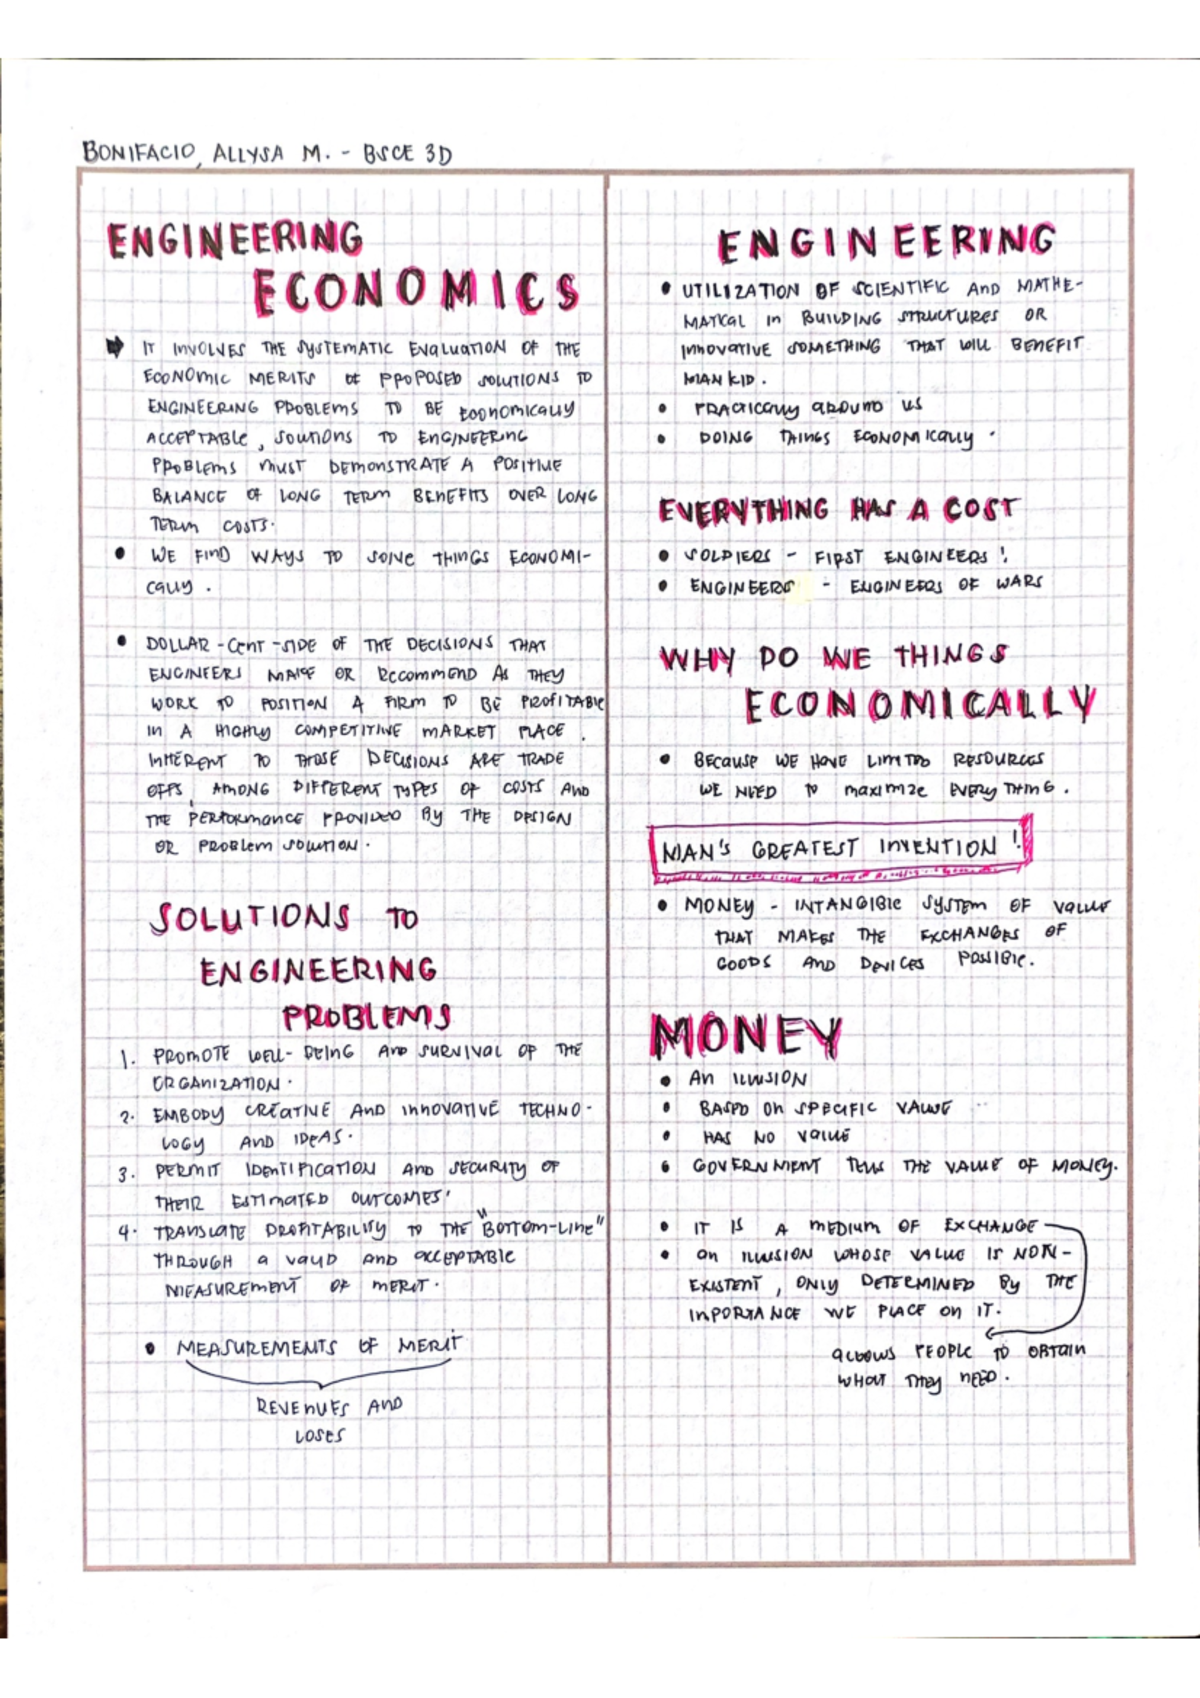 BONIFACIO, ALLYSA M. - BSCE 3D
ENGINEERING
ECONOMICS
IT INVOLVES THE SYSTEMATIC EVALUATION OF THE
ECONOMIC MERITS OF PROPOSED SOLUTIONS TO
ENGINEERING PROBLEMS TO BE ECONOMICALLY
ACCEPTABLE, SOLUTIONS TO ENGINEERING
PROBLEMS MUST DEMONSTRATE A POSITIVE
BALANCE OF LONG TERM BENEFITS OVER LONG
TERM COSTS.
• WE FIND WAYS TO SOLVE THINGS ECONOMI-
CALLY.
• DOLLAR-CENT-SIDE OF THE DECISIONS THAT
ENGINEERS MAKE OR RECOMMEND AS THEY
WORK TO POSITION A FIRM TO BE PROFITABLE
IN A HIGHLY COMPETITIVE MARKET PLACE.
INHERENT TO THOSE DECISIONS ARE TRADE
OFFS, AMONG DIFFERENT TYPES OF COSTS AND
THE PERFORMANCE PROVIDED BY THE DESIGN
OR PROBLEM SOLUTION.
SOLUTIONS TO
ENGINEERING
PROBLEMS
1. PROMOTE WELL-BEING AND SURVIVAL OF THE
ORGANIZATION.
2. EMBODY CREATIVE AND INNOVATIVE TECHNO-
LOGY AND IDEAS.
3. PERMIT IDENTIFICATION AND SECURITY OF
THEIR ESTIMATED OUTCOMES.
4. TRANSLATE PROFITABILITY TO THE "BOTTOM-LINE"
THROUGH A VALID AND ACCEPTABLE
MEASUREMENT OF MERIT.
• MEASUREMENTS OF MERIT
REVENUES AND
LOSES
ENGINEERING
• UTILIZATION OF SCIENTIFIC AND MATHE-
MATICAL IN BUILDING STRUCTURES OR
INNOVATIVE SOMETHING THAT WILL BENEFIT
MANKID.
• PRACTICALLY AROUND US
• DOING THINGS ECONOMICALLY.
EVERYTHING HAS A COST
• SOLDIERS - FIRST ENGINEERS!
• ENGINEERS - ENGINEERS OF WARS
WHY DO WE THINGS
ECONOMICALLY
• BECAUSE WE HAVE LIMITED RESOURCES
WE NEED TO MAXIMIZE EVERYTHING.
MAN'S GREATEST INVENTION!
• MONEY - INTANGIBLE SYSTEM OF VALUE
THAT MAKES THE EXCHANGES OF
GOODS AND DEVICES POSSIBLE.
MONEY
• AN ILLUSION
• BASED ON SPECIFIC VALUE
• HAS NO VALUE
• GOVERNMENT TELLS THE VALUE OF MONEY.
• IT IS A MEDIUM OF EXCHANGE
• AN ILLUSION WHOSE VALUE IS NON-
EXISTENT, ONLY DETERMINED BY THE
IMPORTANCE WE PLACE ON IT.
ALLOWS PEOPLE TO OBTAIN
WHAT THEY NEED.